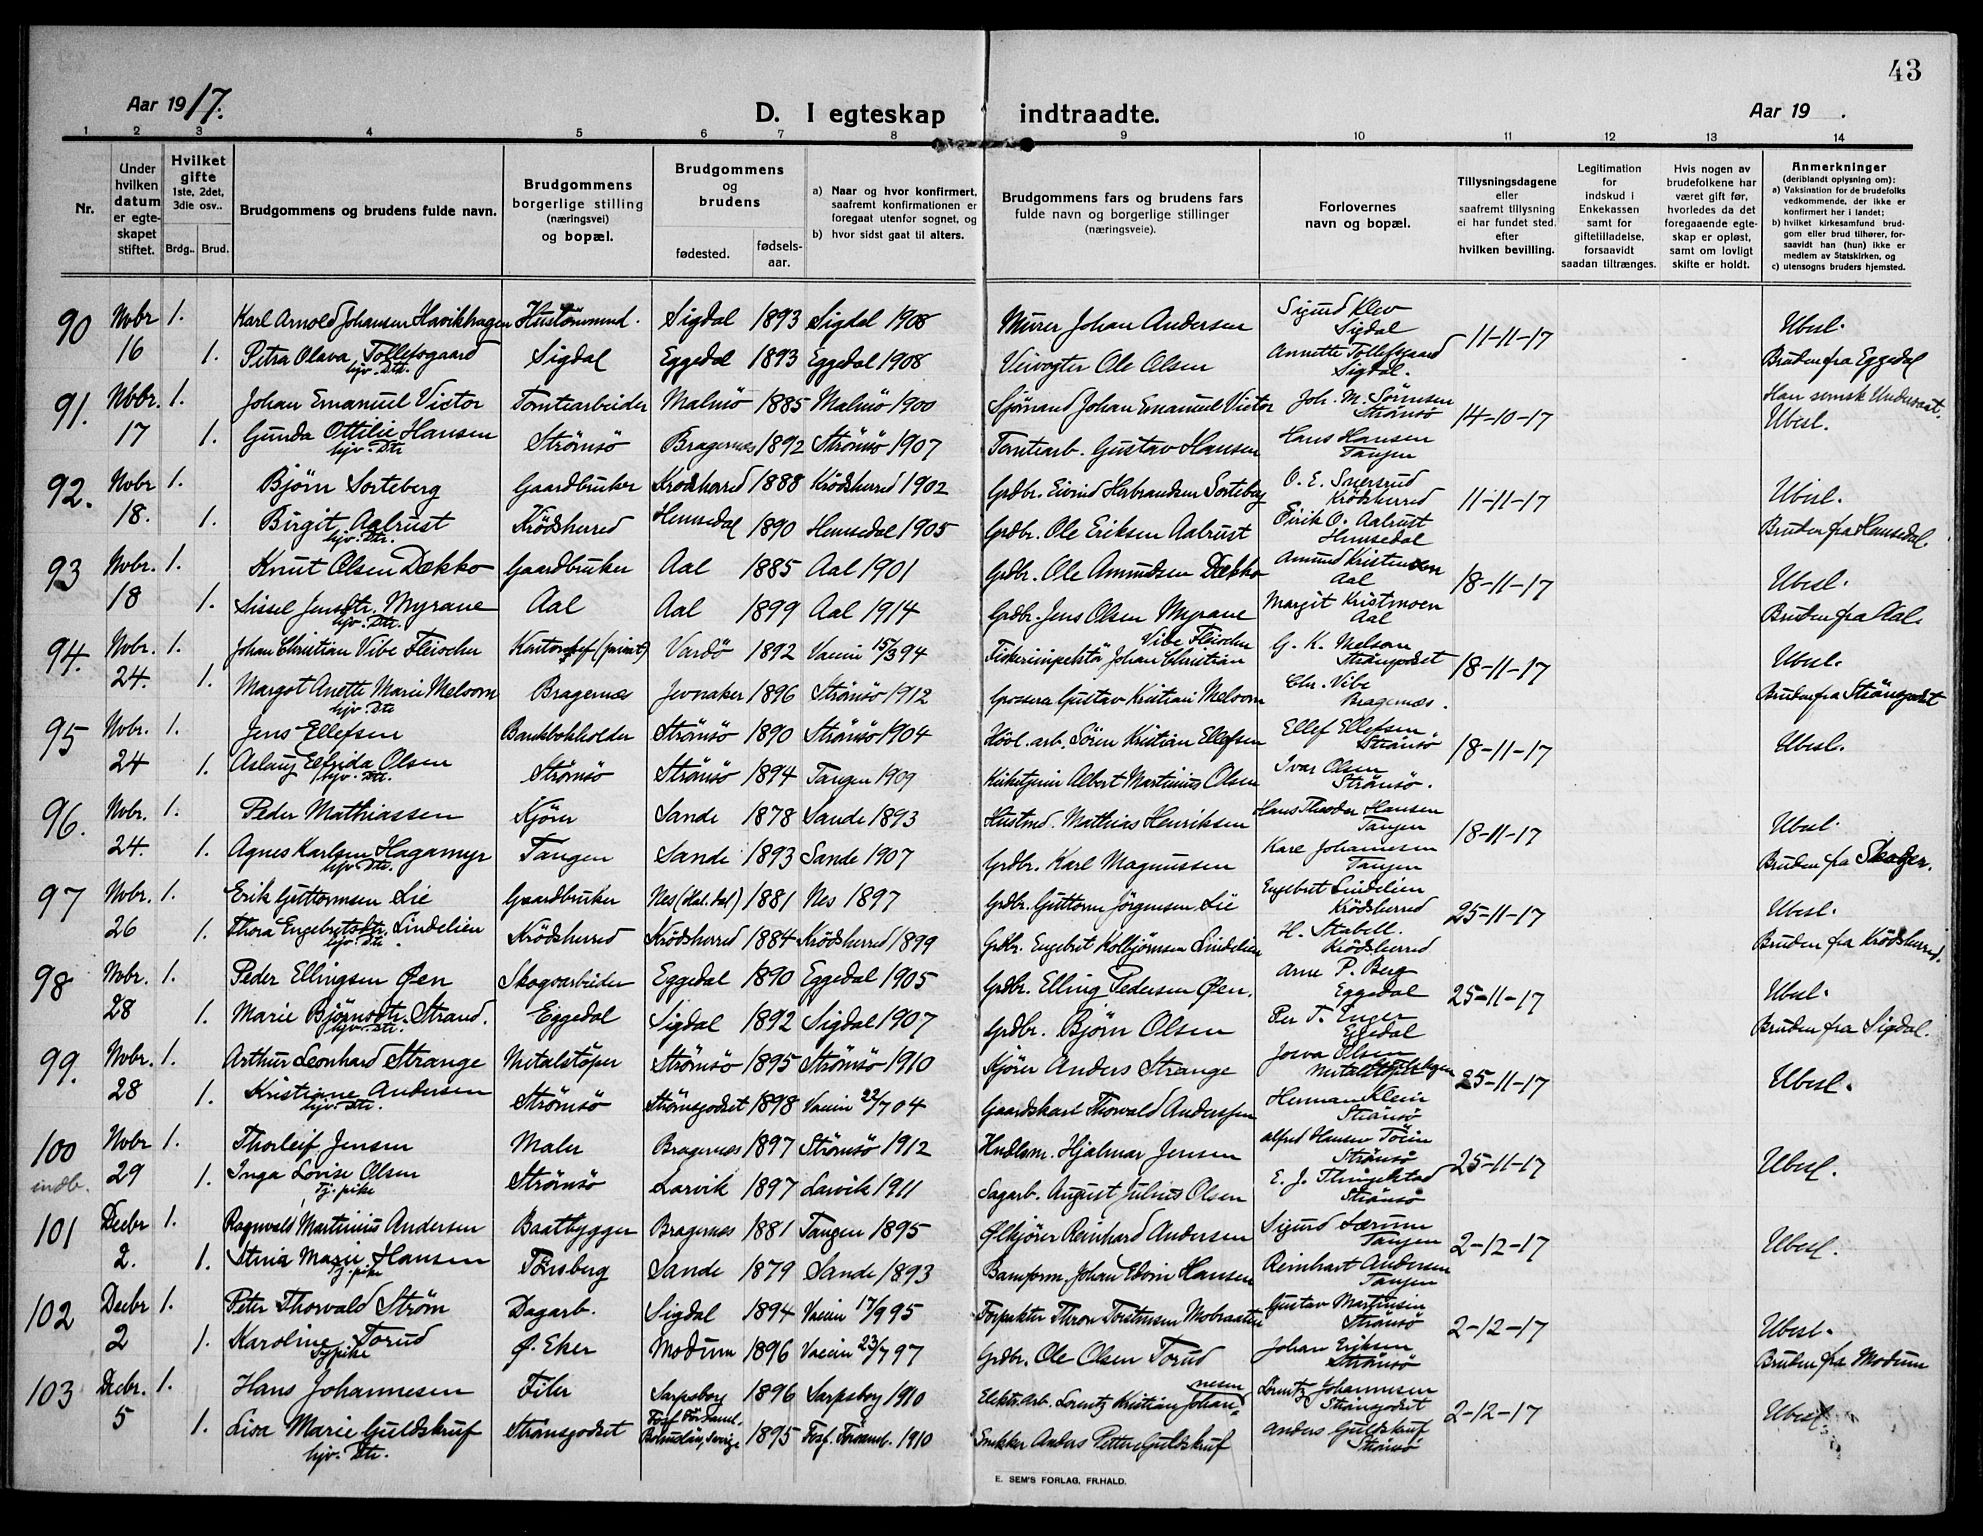 43
Aar 1917.
D. I egteskap indtraadte.
Aar 19 .
1 2 3 4 5 6 7 8 9 10 11 12 13 14
Nr.
Under hvilken datum er egteskapet stiftet.
Hvilket gifte 1ste, 2det, 3die osv..
Brdg.. Brud.
Brudgommens og brudens fulde navn.
Brudgommens borgerlige stilling (næringsvei) og bopæl.
Brudgommens og brudens
fødested. fødselsaar.
a) Naar og hvor konfirmert, saafremt konfirmationen er foregaat utenfor sognet, og
b) hvor sidst gaat til alters.
Brudgommens fars og brudens fars fulde navn og borgerlige stillinger (næringsveie).
Forlovernes navn og bopæl.
Tillysningsdagene eller saafremt tillysning ei har fundet sted, efter hvilken bevilling.
Legitimation for indskud i Enkekassen samt for giftetilladelse, forsaavidt saadan tiltrænges.
Hvis nogen av brudefolkene har været gift før, hvorledes da det foregaaende egteskap er opløst, samt om lovligt skifte er holdt.
Anmerkninger (deriblandt oplysning om):
a) Vaksination for de brudefolks vedkommende, der ikke er konfirmert her i landet;
b) hvilket kirkesamfund brudgom eller brud tilhører, forsaavidt han (hun) ikke er medlem av Statskirken, og
c) utensogns bruders hjemsted.
90 Nvbr 1. Karl Arnold Johansen Havikhagen Hustømmend. Sigdal 1893 Sigdal 1908 Murer Johan Andersen Sigurd Klev Sigdal 11-11-17 Ubesl.
16 1. Petra Olava Tollefsgaard hjv. Dtr. Sigdal Eggedal 1893 Eggedal 1908 Veivogter Ole Olsen Annette Tollefsgaard Sigdal. Bruden fra Eggedal
91. Nvbr. 1. Johan Emanuel Victor Tomtearbeider Malmö 1885 Malmö 1900 Sjømand Johan Emanuel Victor Joh. M. Sørensen Strømsö 14-10-17 Han svensk Undersaat. Ubesl.
17 1. Gunda Ottilie Hansen hjv. Dtr Strømsö Bragernes 1892 Strømsö 1907 Tomtearb. Gustav Hansen Hans Hansen Tangen
92. Nvbr 1. Bjørn Sorteberg Gaardbruker Krødsherred 1888 Krödsherred 1902 Grdbr. Eivind Herbrandsen Sorteberg O. E. Snersrud Krödsherred 11-11-17 Ubesl.
18. 1. Birgit Aalrust hjv. Dtr. Krödsherred Hemsedal 1890 Hemsedal 1905 Grdbr. Ole Eriksen Aalrust Eirik O. Aalrust Hemsedal Bruden fra Hemsedal.
93 Nvbr. 1. Knut Olsen Dækko Gaardbruker Aal 1885 Aal 1901 Grdbr. Ole Amundsen Dækko Amund Kristensen Aal 18-11-17 Ubesl.
18 1. Sissel Jensdtr. Myrane hjv. Dtr. Aal Aal 1899 Aal 1914 Grdbr. Jens Olsen Myrane Margit Kristmoen Aal Bruden fra Aal.
94. Nvbr. 1. Johan Christian Vibe Fleischer Kontorchef (privat) Vardö 1892 Vaccin 15/3 94 Fiskeriinspektör Johan Christian Vibe Fleischer G. K. Melsom Strömgodset 18-11-17 Ubesl.
24. 1. Margot Anette Marie Melsom hjv. Dtr Bragernæs Jevnaker 1896 Strömsö 1912 Grosserer Gustav Kristian Melsom Chr. Vibe Bragernæs. Bruden fra Strömgodset
95 Nvbr. 1. Jens Ellefsen Bankbokholder Strömsö 1890 Strömsö 1904 Hövl. arb. Sören Kristian Ellefsen Ellef Ellefsen Strömsö 18-11-17 Ubesl.
24 1. Aslaug Elfrida Olsen hjv. Dtr. Strömsö Strömsö 1894 Tangen 1909 Kirketjener Albert Martinius Olsen Ivar Olsen Strömsö.
96. Nvbr. 1. Peder Mathiassen Kjörer Sande 1878 Sande 1893 Hustmd. Mathias Henriksen Hans Theodor Hansen Tangen 18-11-17 Ubesl.
24. 1. Agnes Karlsen Hagamyr hjv. Dtr. Tangen Sande 1893 Sande 1907 Grdbr. Karl Magnussen Karl Johannesen Tangen Bruden fra Skoger.
97 Nvbr. 1. Erik Guttormsen Lie Gaardbruker Nes (Hal.dal) 1881 Nes 1897 Grdbr. Guttorm Jörgensen Lie Engebret Lindelien Krödsherred 25-11-17 Ubesl.
26 1. Thora Engebretsdtr. Lindelien hjv. Dtr. Krödsherred Krödsherred 1884 Krödsherred 1899 Grdbr. Engebret Kolbjörnsen Lindelien H. Stabell. Krödsherred Bruden fra Krödsherred.
98 Nvbr. 1. Peder Ellingsen Øen Skogsarbeider Eggedal 1890 Eggedal 1905 Grdbr. Elling Pedersen Øen. Arne P. Berg Eggedal 25-11-17 Ubesl.
28 1. Marie Bjørnsdtr. Strand. hjv. Dtr. Eggedal Sigdal 1892 Sigdal 1907 Grdbr. Bjørn Olsen Per T. Enger Eggedal Bruden fra Sigdal.
99. Nvbr. 1. Arthur Leonhard Strange Metalstøper Strömsö 1895 Strömsö 1910 Kjörer Anders Strange Josva Olsen Metalstøper 25-11-17 Ubesl.
28 1. Kristiane Andersen hjv. Dtr. Strömsö Strömsgodset 1898 Vaccin 22/7 04 Gaardskarl Thorvald Anderssen Herman Klein Strömsö
100 Nvbr 1. Thorleif Jensen Maler Bragernæs 1897 Strömsö 1912 Hndlsm. Hjalmar Jensen Alfred Hansen Strömsö 25-11-17 Ubesl.
indb. 29 1. Inga Lovise Olsen Tj. pike Strömsö Larvik 1897 Larvik 1911 Sagarb. August Julius Olsen E. J. Thingelstad Strömsö
101 Decbr 1. Ragnvald Martinius Andersen Baatbygger Bragernæs 1881 Tangen 1895 Ølkjörer Reinhard Andersen Sigurd Sørum Tangen 2-12-17 Ubesl.
2. 1. Stina Marie Hansen Tj. pike Tönsberg Sande 1879 Sande 1893 Baneform. Johan Edvin Hansen Reinhart Andersen Tangen
102 Decbr 1. Peter Thorvald Strøm Dagarb. Sigdal 1894 Vaccin 17/9 95 Forpakter Thron Torstensen Mobraaten Gustav Martinsen Strömsö 2-12-17 Ubesl.
2 1. Karoline Torud Tj pike Ø. Eker Modum 1896 Vaccin 23/7 97 Grdbr. Ole Olsen Torud Johan Eriksen Strömsö Bruden fra Modum
103 Decbr. 1. Hans Johannesen Filer Sarpsborg 1896 Sarpsborg 1910 Elektr. Arb. Lorentz Kristian Johannesen Lorentz Johannesen Strömgodset 2-12-17 Ubesl.
5 1. Lisa Marie Guldskruf hjv. Dtr. Strömsgodset Bohuslän, Sverige 1895 1910 Snekker Anders Petter Guldskruf Anders Guldskruf Strömsö
E. SEM'S FORLAG, FR.HALD.